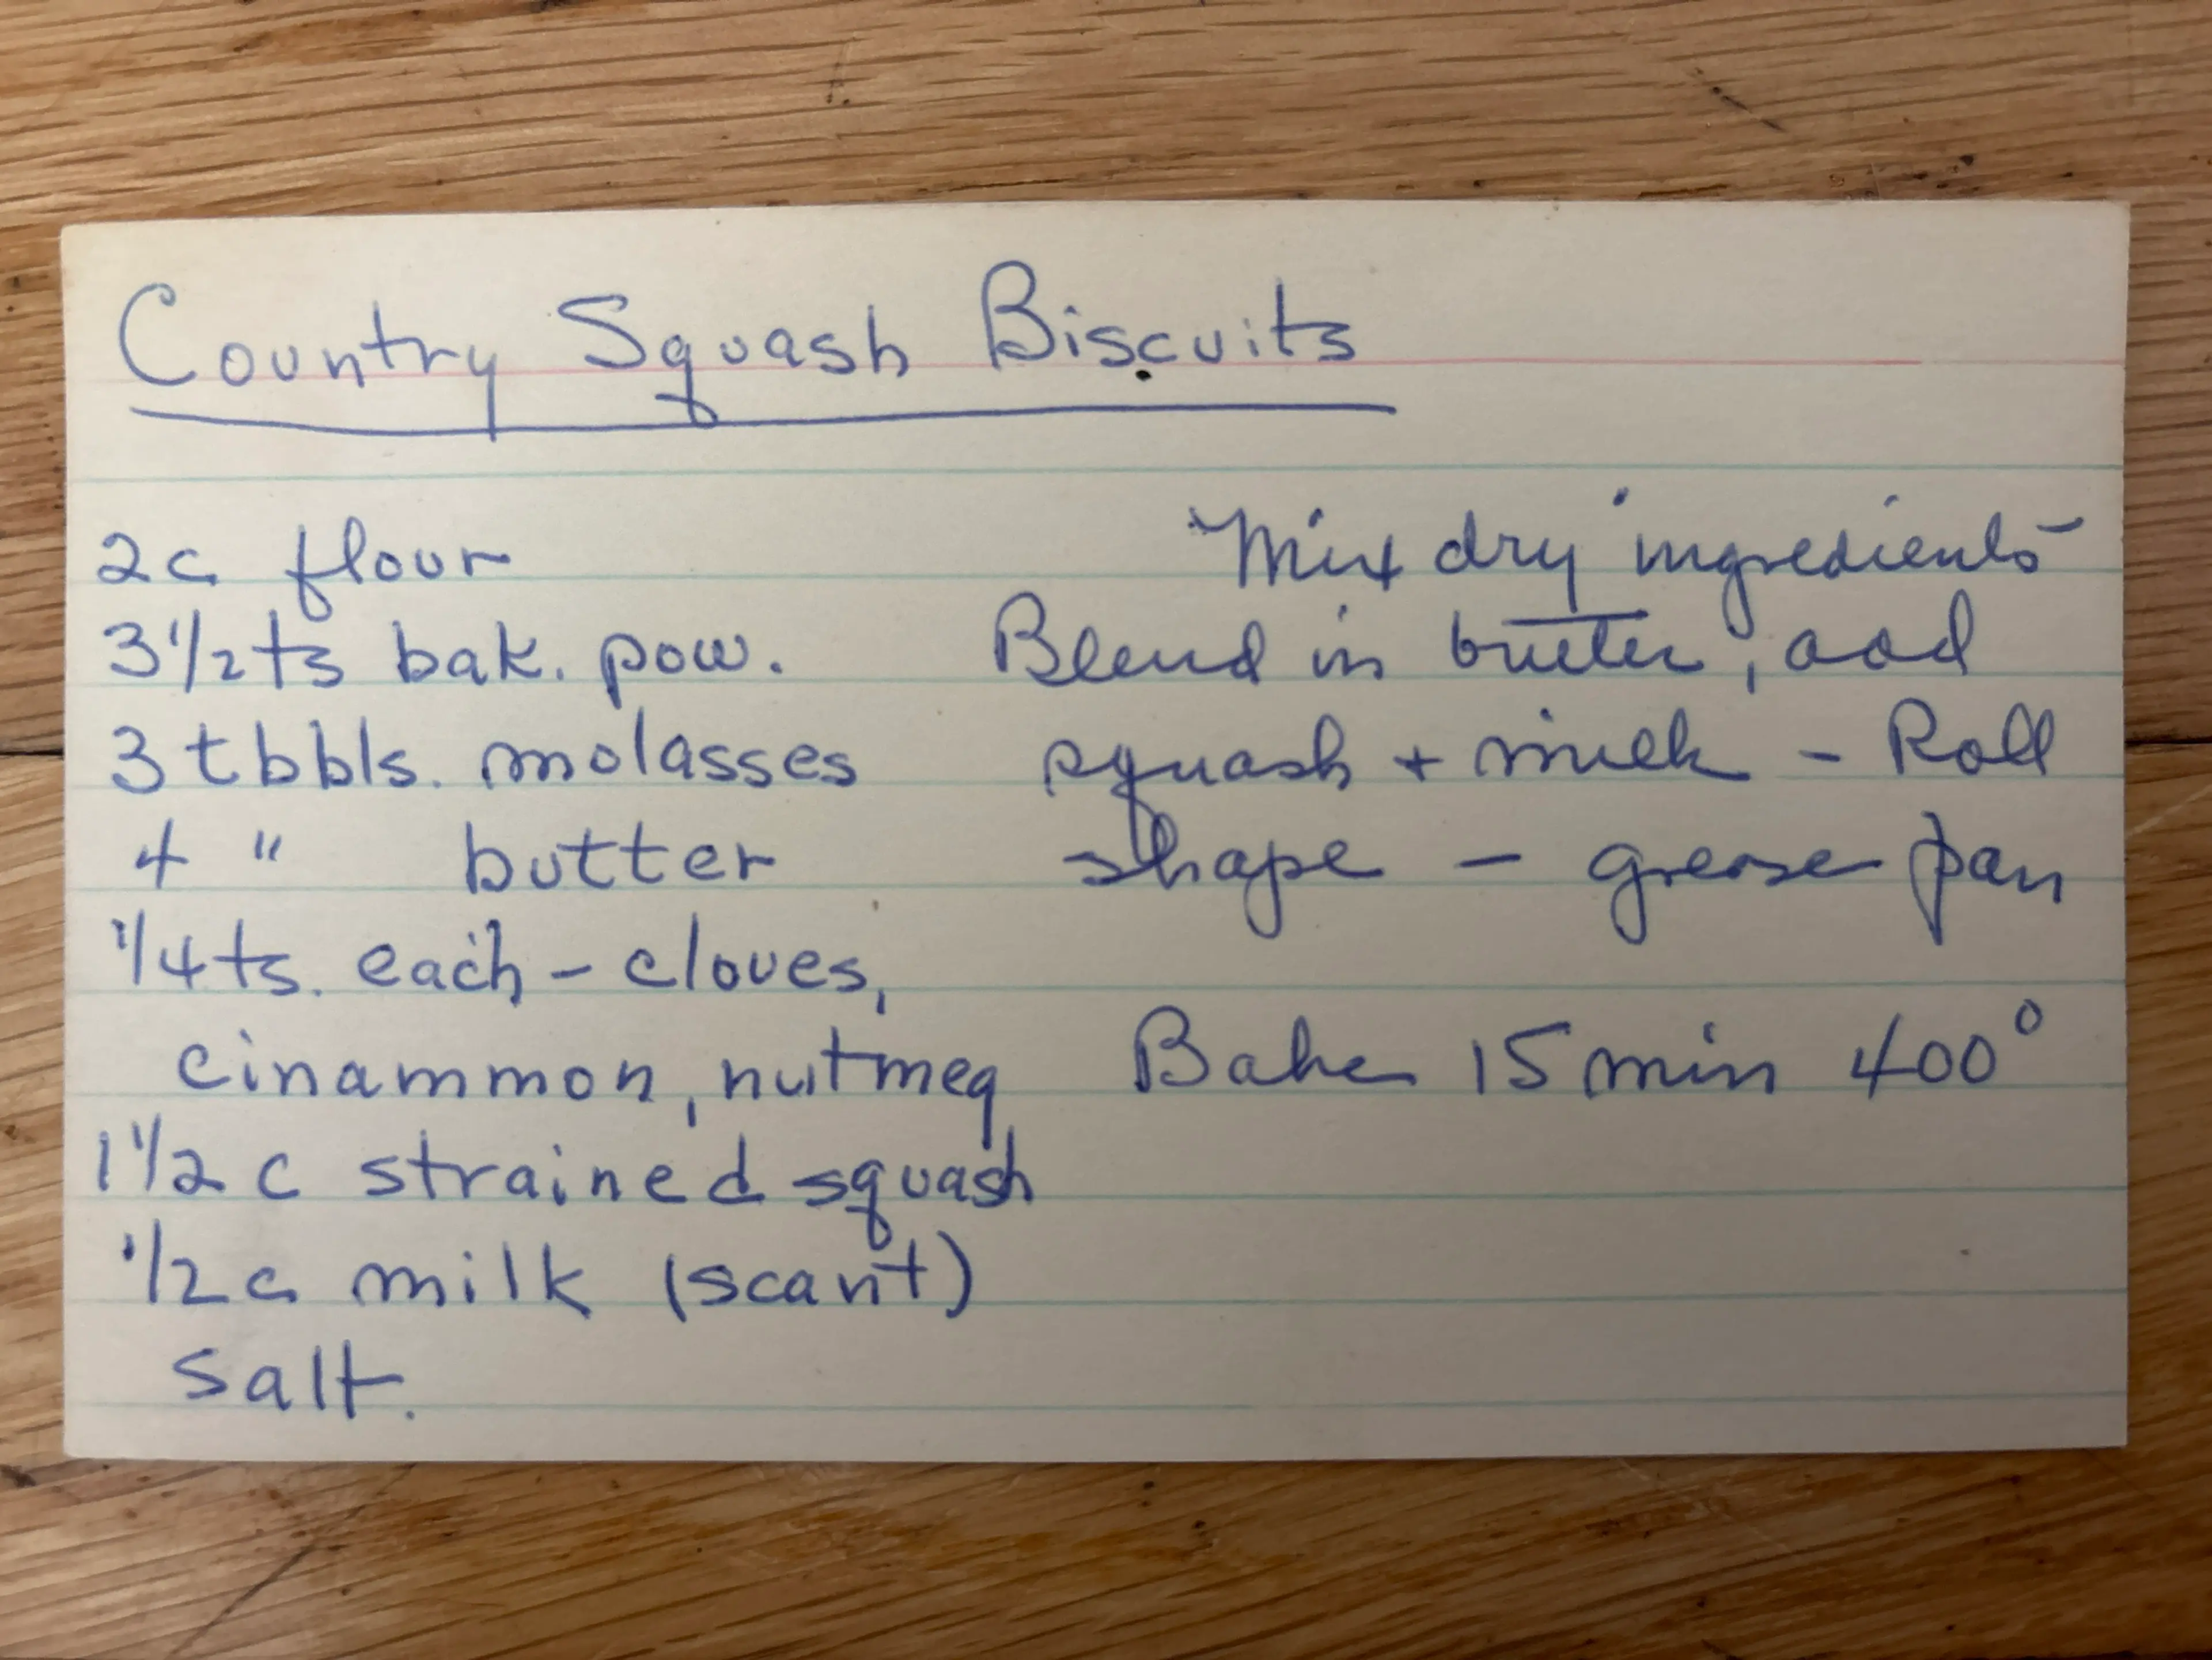 Country Squash Biscuits
2c flour
3 1/2 ts bak. pow.
3 tbbls. molasses
4 " butter
1/4 ts. each - cloves,
cinammon, nutmeg
1 1/2 c strained squash
1/2 c milk (scant)
salt.
Mix dry ingredients -
Blend in butter, add
squash + milk - Roll
shape - grease pan
Bake 15 min 400°